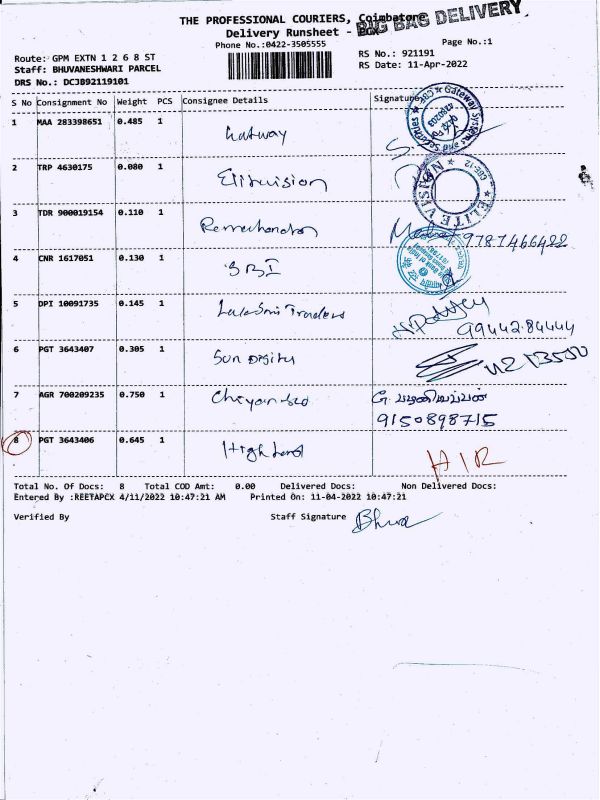 THE PROFESSIONAL COURIERS, Coimbatore
BIG BAG DELIVERY
Delivery Runsheet - PCX
Phone No.:0422-3505555
Page No.:1
Route: GPM EXTN 1 2 6 8 ST
RS No.: 921191
Staff: BHUVANESHWARI PARCEL
RS Date: 11-Apr-2022
DRS No.: DC3B92119101
S No Consignment No Weight PCS Consignee Details Signature
1 MAA 283398651 0.485 1 Gatway
2 TRP 4630175 0.080 1 Elitvision
ELITE VISION
3 TDR 900019154 0.110 1 Ramachandran 9787466422
4 CNR 1617051 0.130 1 SBI
5 DPI 10091735 0.145 1 Traders
99442-84444
6 PGT 3643407 0.305 1 Sun
7 AGR 700209235 0.750 1
9150898715
8 PGT 3643406 0.645 1 HIR
Total No. Of Docs: 8 Total COD Amt: 0.00 Delivered Docs: Non Delivered Docs:
Entered By :REETAPCX 4/11/2022 10:47:21 AM Printed On: 11-04-2022 10:47:21
Verified By Staff Signature Bhuva